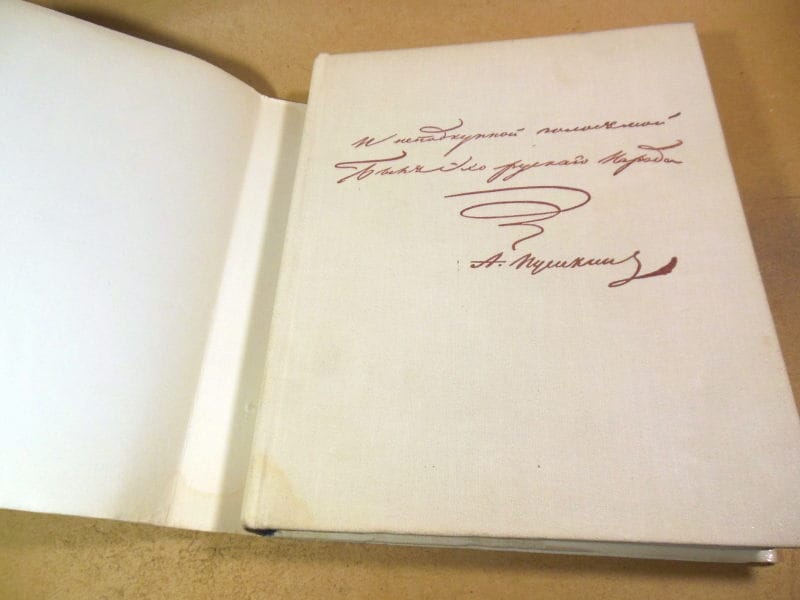 И неподкупной голосъ мой
Былъ эхо рускаго Народа
А. Пушкинъ